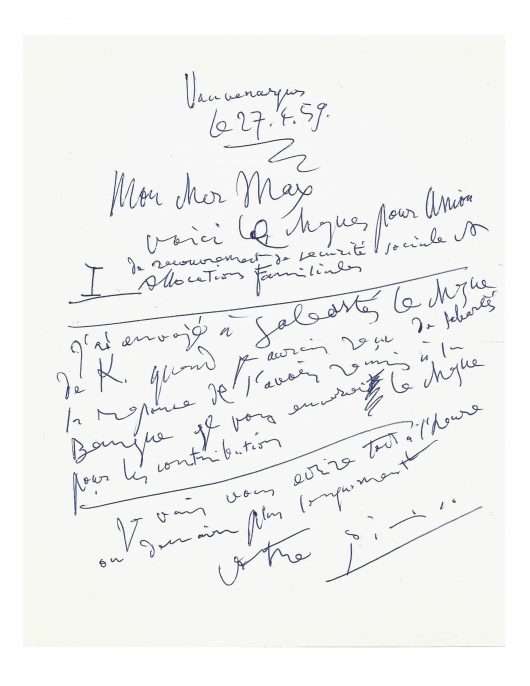 Vauvenargues
le 27.4.59.
Mon cher Max
voici le chèque pour Union
I de recouvrement de securité sociale et
Allocations Familiales
J'ai envoyé à Sabartés le chèque
de K. quand j'aurai reçu de Sabartés
la reponse de l'avoir remis à la
Banque je vous enverrai le chèque
pour les contribution
Je vais vous ecrire tout à l'heure
ou demain plus longuement
votre